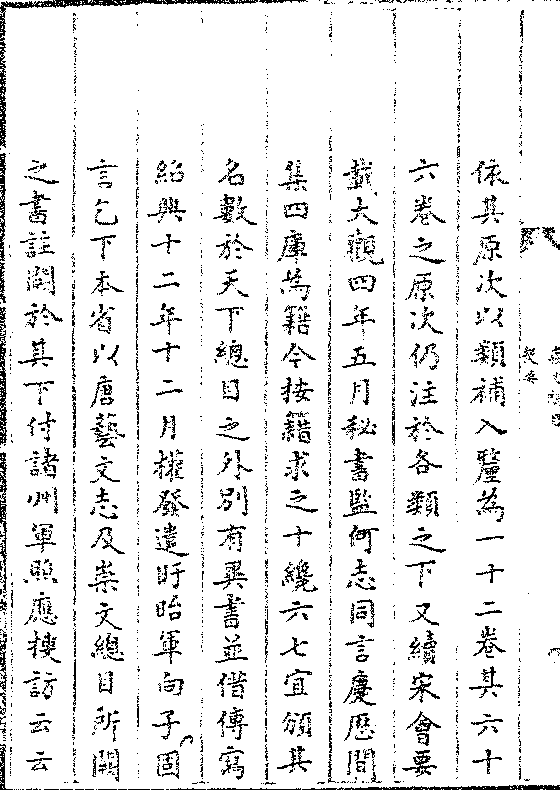 依其原次以類補入釐為一十二卷其六十
六卷之原次仍注於各類之下又續宋會要
載大觀四年五月秘書監何志同言慶厯間
集四庫為籍今按籍求之十纔六七宜頒其
名數於天下總目之外别有異書並借傳寫
紹興十二年十二月權發遣盱眙軍向子固
言乞下本省以唐藝文志及崇文總目所闕
之書註闕於其下付諸州軍照應搜訪云云